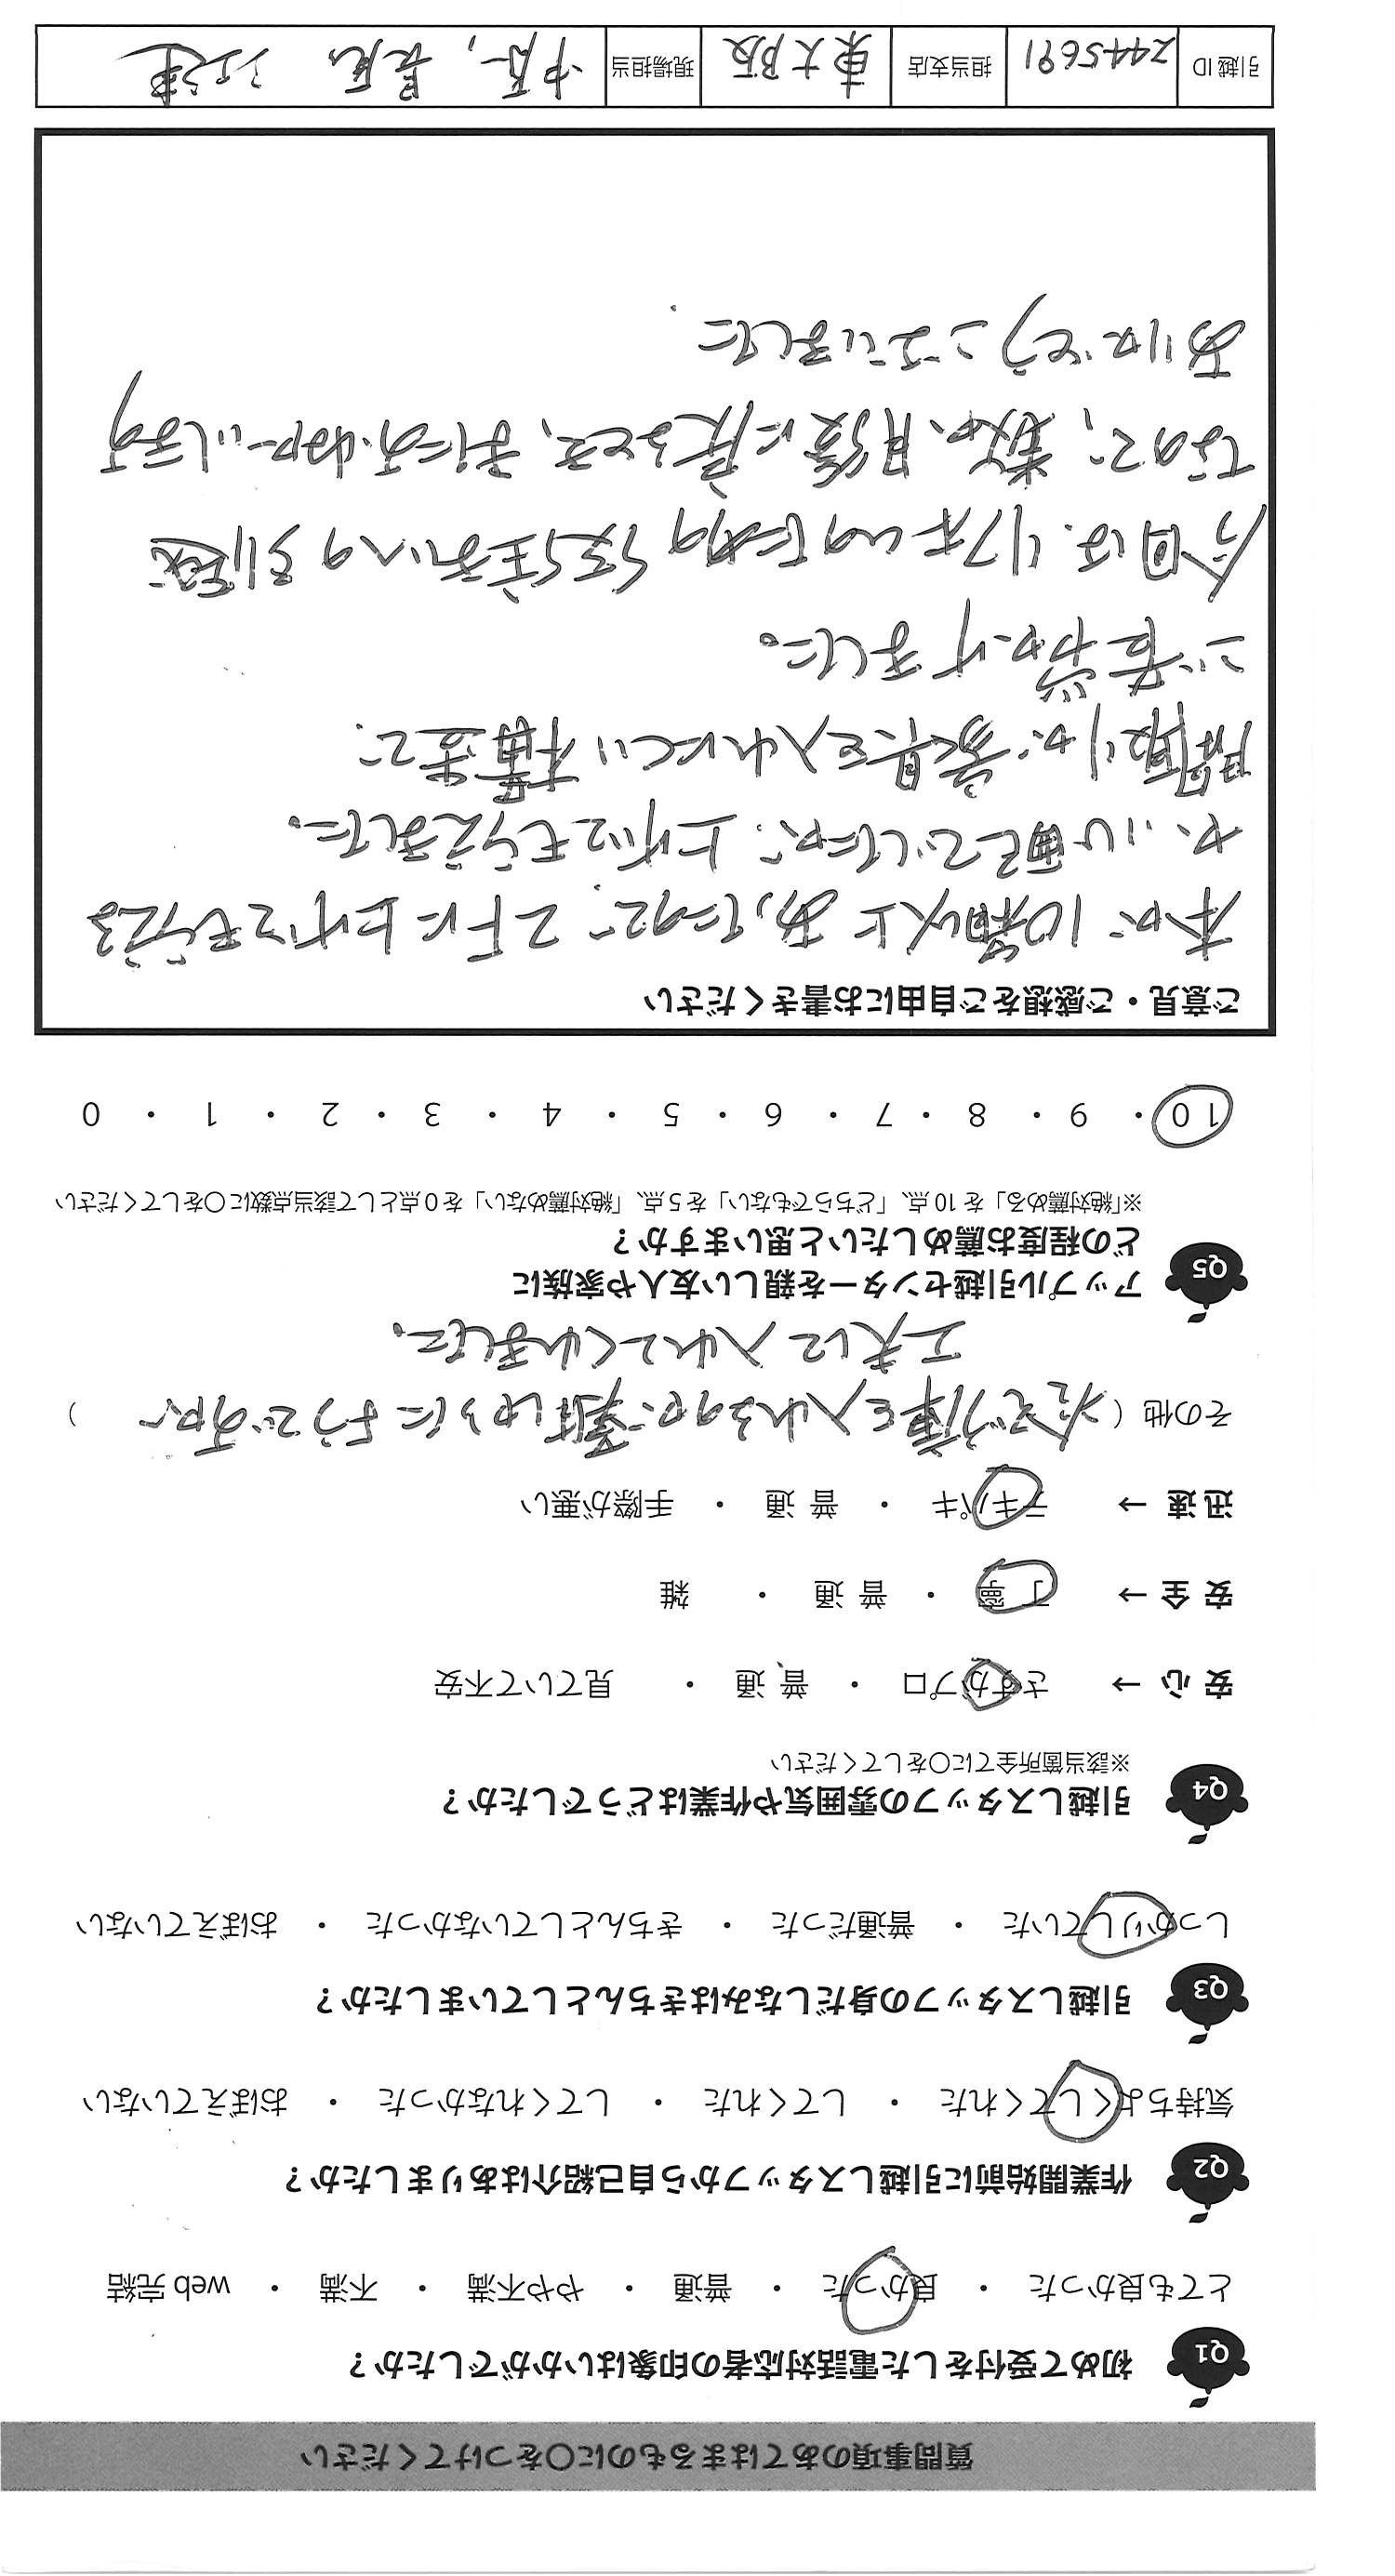 質問事項のあてはまるものに○をつけてください
Q1 初めて受付をした電話対応者の印象はいかがでしたか？
とても良かった ・ 良かった ・ 普通 ・ やや不満 ・ 不満 ・ web 完結
Q2 作業開始前に引越しスタッフから自己紹介はありましたか？
気持ちよくしてくれた ・ してくれた ・ してくれなかった ・ おぼえていない
Q3 引越しスタッフの身だしなみはきちんとしていましたか？
しっかりしていた ・ 普通だった ・ きちんとしていなかった ・ おぼえていない
Q4 引越しスタッフの雰囲気や作業はどうでしたか？
※該当箇所全てに○をしてください
安心 → さすがプロ ・ 普通 ・ 見ていて不安
安全 → 丁寧 ・ 普通 ・ 雑
迅速 → テキパキ ・ 普通 ・ 手際が悪い
その他（ 冷ぞう庫を入れるのが難しそうにようですが、 ）
工夫して入れてくれました。
Q5 アップル引越センターを親しい友人や家族に
どの程度お薦めしたいと思いますか？
※「絶対薦める」を 10 点、「どちらでもない」を 5 点、「絶対薦めない」を 0 点として該当点数に○をしてください
10 ・ 9 ・ 8 ・ 7 ・ 6 ・ 5 ・ 4 ・ 3 ・ 2 ・ 1 ・ 0
ご意見・ご感想をご自由にお書きください
本が10箱以上あったので、2Fに上げてもらえる
か心配でしたが、上げてもらえました。
間取りが家具を入れにくい構造で
ご苦労かけました。
今回は、リフォームのための仮住まいへの引越
なので、数か月後に戻るとき、またおねがいします
ありがとうございました.
引越 ID 2445691 担当支店 東大阪 現場担当 中原, 長尾 江津